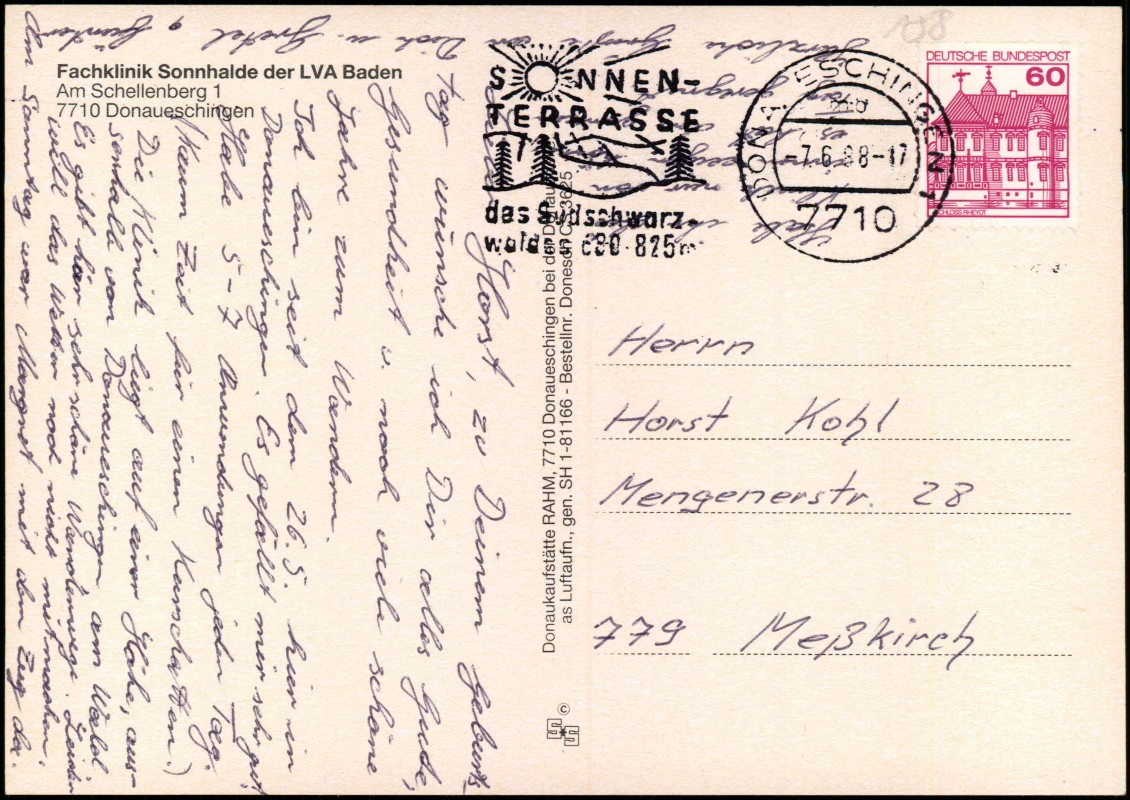 Fachklinik Sonnhalde der LVA Baden
Am Schellenberg 1
7710 Donaueschingen
SONNEN-
TERRASSE
des Südschwarz-
waldes 680-825m
DONAUESCHINGEN 1
-7.6.88-17
7710
DEUTSCHE BUNDESPOST
60
SCHLOSS RHEYDT
158
Herrn
Horst Kohl
Mengenerstr. 28
779 Meßkirch
Donaukaufstätte RAHM, 7710 Donaueschingen bei der Donau
as Luftaufn., gen. SH 1-81166 - Bestellnr. Donesch C 13625
©
Lieber Horst, zu Deinem Geburts-
tag wünsche ich Dir alles Gude,
Gesundheit u. noch viele schöne
Jahre zum Wandern.
Ich bin seit dem 26.5. hier in
Donaueschingen. Es gefällt mir sehr gut
(Habe 5-7 Anwendungen jeden Tag.
Kaum Zeit für einen Kurschatten.)
Die Klinik liegt auf einer Höhe, aus-
serhalb von Donaueschingen am Wald.
Es gibt hier sehr schöne Wanderwege. Leider
will das Wetter noch nicht mitmachen.
Am Sonntag war Margret mit dem Zug da.
nur
es
geregnet
Herzliche Grüße an Dich u. Gretel, Günter